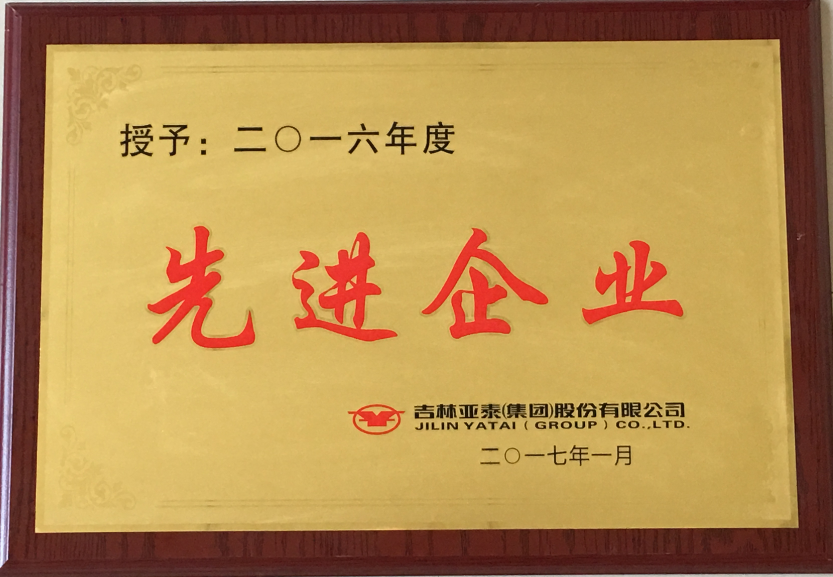 授予：二〇一六年度
先进企业
吉林亚泰(集团)股份有限公司
JILIN YATAI ( GROUP ) CO.,LTD.
二〇一七年一月